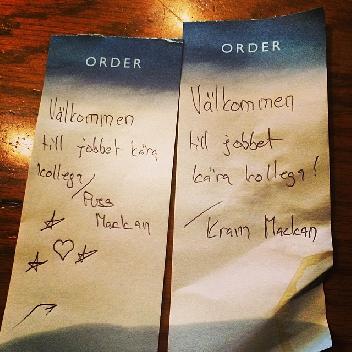 ORDER
Välkommen
till jobbet kära
kollega
/ Puss
Mackan
ORDER
Välkommen
till jobbet
kära kollega!
/ Kram Mackan